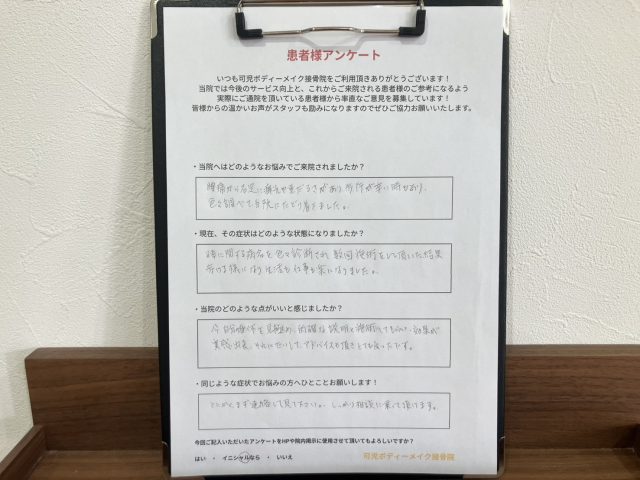 患者様アンケート
いつも可児ボディーメイク接骨院をご利用頂きありがとうございます！
当院では今後のサービス向上と、これからご来院される患者様のご参考になるよう
実際にご通院を頂いている患者様から率直なご意見を募集しています！
皆様からの温かいお声がスタッフも励みになりますのでぜひご協力お願いいたします。
・当院へはどのようなお悩みでご来院されましたか？
腰痛から右足に痛みや重だるさがあり歩行が辛い時もあり、
色々調べて当院にたどり着きました。
・現在、その症状はどのような状態になりましたか？
腰に関する病名を色々診断され数回施術をして頂いた結果
生活も仕事も楽になりました。
・当院のどのような点がいいと感じましたか？
説明と施術をしてもらい、効果が
アドバイスも頂きとても良いです。
・同じような症状でお悩みの方へひとことお願いします！
とにかくまず連絡して見て下さい。しっかり相談に乗って頂けます。
今回ご記入いただいたアンケートをHPや院内掲示に使用させて頂いてもよろしいですか？
はい ・ イニシャルなら ・ いいえ
可児ボディーメイク接骨院